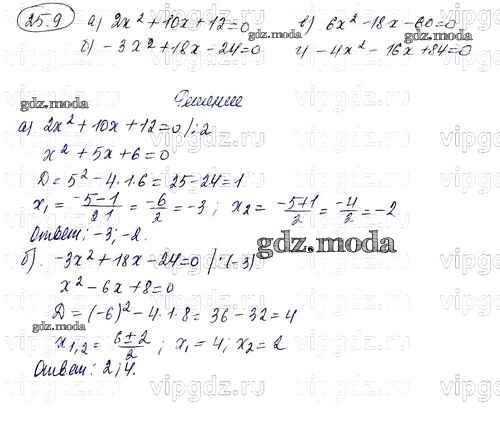 25.9 а) 2x² + 10x + 12 = 0 в) 6x² - 18x - 60 = 0
б) -3x² + 18x - 24 = 0 г) -4x² - 16x + 84 = 0
gdz.moda
Решение
gdz.moda
а) 2x² + 10x + 12 = 0 /:2
x² + 5x + 6 = 0
D = 5² - 4·1·6 = 25 - 24 = 1
x₁ = (-5-1)/(2·1) = -6/2 = -3 ; x₂ = (-5+1)/2 = -4/2 = -2
Ответ: -3; -2.
gdz.moda
б). -3x² + 18x - 24 = 0 /:(-3)
x² - 6x + 8 = 0
D = (-6)² - 4·1·8 = 36 - 32 = 4
gdz.moda
x₁,₂ = (6±2)/2 ; x₁ = 4; x₂ = 2
Ответ: 2; 4.
vipgdz.ru